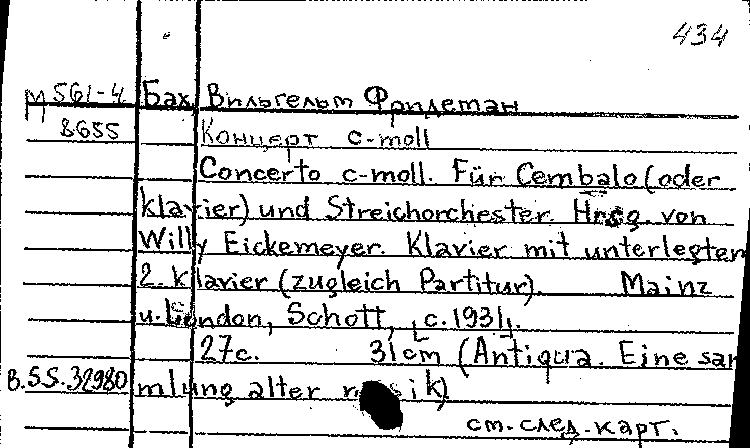 434
М 561-4 Бах, Вильгельм Фридеман
8655 Концерт c-moll
Concerto c-moll. Für Cembalo (oder
klavier) und Streichorchester. Hrsg. von
Willy Eickemeyer. Klavier mit unterlegten
2. Klavier (zugleich Partitur). Mainz
u. London, Schott, [c. 1931].
27c. 31cm (Antiqua. Eine sam
B.S.S. 32980 mlung alter musik)
см. след. карт.